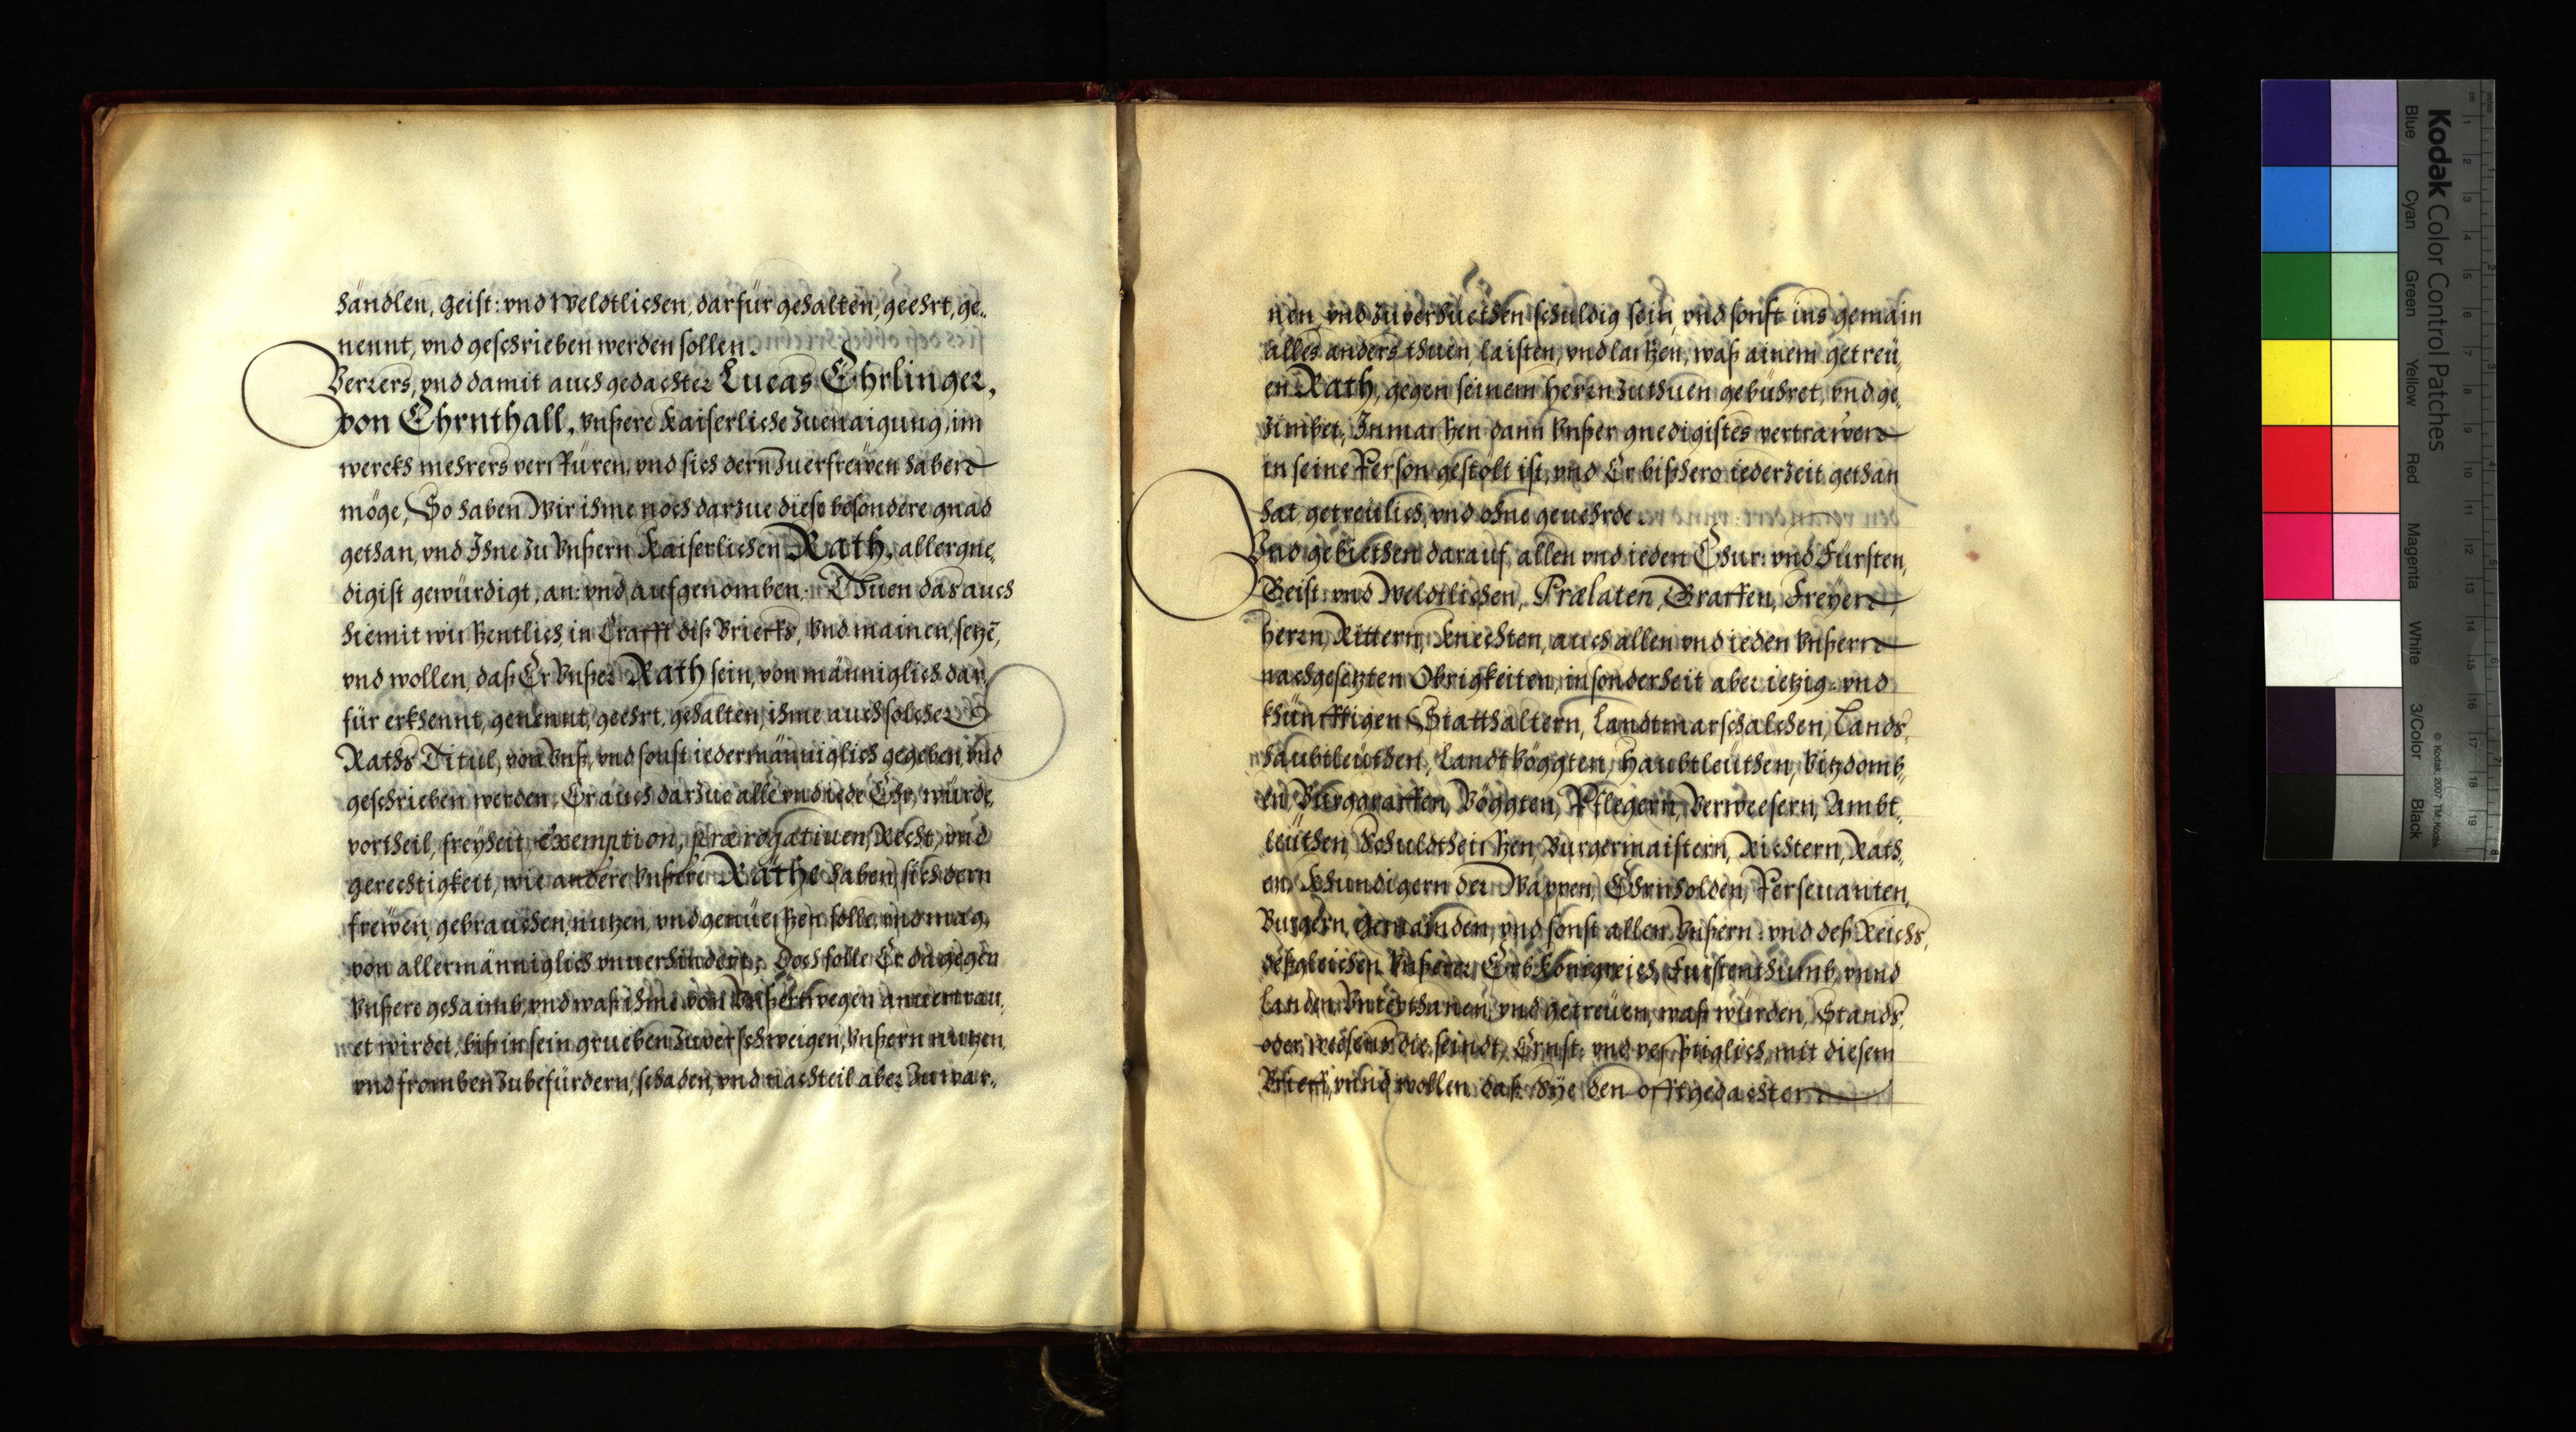 händlen, geist: vnd Weldtlichen, darfür gehalten, geehrt, ge„
nennt, vnd geschrieben werden sollen.
Verrers, vnd damit auch gedachter Lucas Ehrlinger,
von Ehrnthall, vnßere Kaiserliche zuenaigung, im
werckh mehrers verspüren, vnd sich dern zuerfrewen haben
möge, So haben Wir ihme noch darzue diese besondere gnad
gethan, vnd Ihne zu Vnßern Kaiserlichen Rath, allergne„
digist gewürdigt, an: vnd aufgenomben. Thuen das auch
hiemit wissentlich, in Crafft diß Brieffs, Vnd mainen, setzē,
vnd wollen, daß Er Vnßer Rath sein, von männiglich dar„
für erkhennt, genennt, geehrt, gehalten, ihme auch solcher
Raths Titul, von Vnß, vnd sonst iedermänniglich gegeben, vnd
geschrieben werden, Er auch darzue alle vnd iede Ehr, würde,
vortheil, freyheit, exemption, prærogatiuen, Recht, vnd
gerechtigkeit, wie andere Vnßere Räthe haben, sich dern
frewen, gebrauchen, nutzen, vnd genüessen solle, vnd mag,
von allermänniglich vnuerhindert; Doch solle Er dagegen
Vnßere gehaimb, vnd waß ihme von Vnßertwegen anuertrau„
et wirdet, biß in sein grueben zuverschweigen, Vnßern nutzen,
vnd fromben zubefürdern, schaden, vnd nachteil aber zuwar„
nen, vnd zuverhuethen schuldig sein, vnd sonst ins gemain
alles anders thuen, laisten, vnd lassen, waß ainem getreü„
en Rath, gegen seinem Herrn zuthuen gebühret, vnd ge„
zimbet, Inmassen dann Vnßer gnedigistes vertrawen
in seine Person gestölt ist, vnd Er bißhero iederzeit gethan
hat, getreülich, vnd ohne geuehrde.
Vnd gebiethen darauf, allen vnd ieden Chur: vnd Fürsten,
Geist: vnd Weldtlichen, Prælaten, Graffen, Freyen,
Herrn, Rittern, Knechten, auch allen vnd ieden Vnßern
nachgesetzten Obrigkeiten, insonderheit aber ietzig: vnd
khünfftigen Statthaltern, Landtmarschalchen, Lands„
haubtleüthen, Landtvöggten, Haubtleüthen, Vitzdomb„
en, Burggraffen, Vöggten, Pflegern, Verweesern, Ambt„
leüthen, Schuldtheissen, Burgermaistern, Richtern, Räth„
en, Khundigern der Wappen, Ehrnholden, Perseuanten,
Burgern, Gemainden, vnd sonst allen Vnßern: vnd deß Reichs,
deßgleichen Vnßerer Erb Königreich, Furstenthumb, vnnd
Landen Vnterthanen, vnd getreüen, waß würden, Stands,
oder weßens die seindt, Ernst: vnd vesstiglich, mit diesem
Brieff, vnnd wollen, daß Sye den offtgedachten